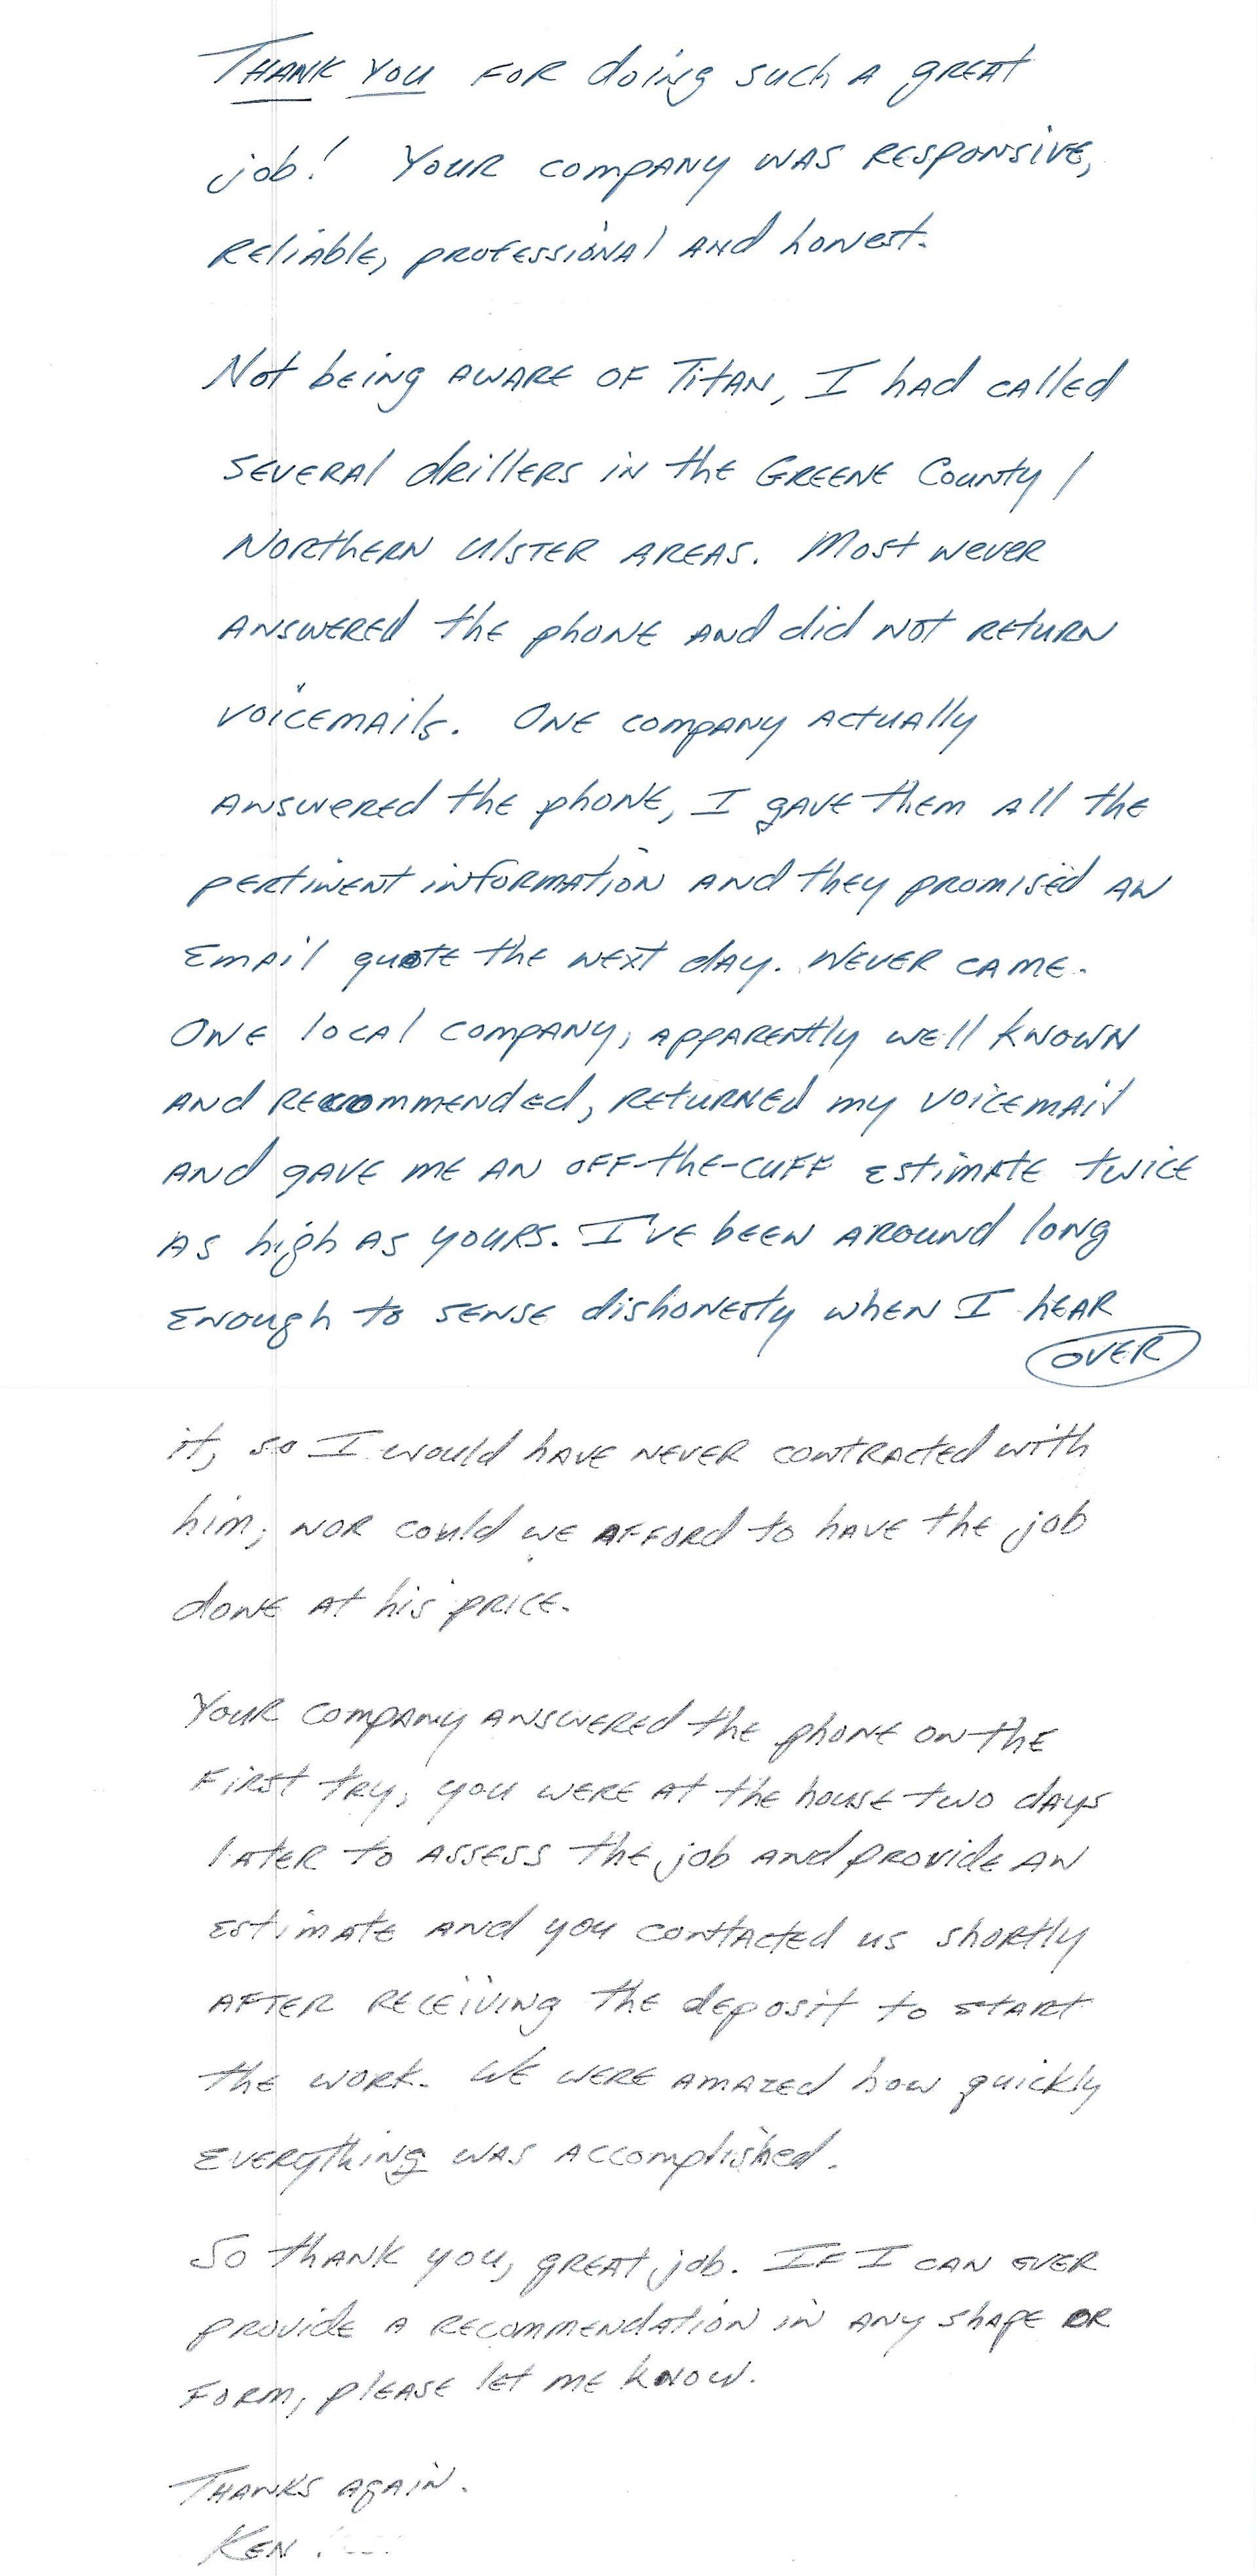 THANK YOU FOR doing such A gREAT
job! YOUR COMPANY WAS RESPONSIVE,
RELIABLE, PROFESSIONAL AND honest.
Not being AWARE OF TITAN, I had CALLED
SEVERAL drillERS IN the GREENE County /
NORTHERN ULSTER AREAS. Most NEVER
ANSWERED the phONE AND did NOT RETURN
VOICEMAILS. ONE COMPANY ACTUALLY
ANSWERED the phONE, I gAVE them All the
PERTINENT INFORMATION AND they PROMISED AN
EMAIL quote the NEXT day. NEVER CAME.
ONE local COMPANY, APPARENTLY WEll KNOWN
AND RECOMMENDED, RETURNED my VOICEMAIL
AND gAVE ME AN OFF-the-CUFF EstimATE twICE
AS high AS YOURS. I'VE bEEN AROUND long
ENough to SENSE dishONESty whEN I hEAR
OVER
it, so I would hAVE NEVER CONTRACTED with
him, NOR could WE AFFORD to hAVE the job
dONE At his PRICE.
YOUR COMPANY ANSWERED the phONE ON the
FIRST TRY, you WERE At the housE two days
LATER to ASSESS the job AND PROVIDE AN
EstimATE AND you CONTACTED us shORTly
AFTER RECEIVING the dEposit to START
the WORK. WE WERE AMAZED how quickly
EVERYthing WAS ACCOMPlished.
So thANK you, gREAT job. IF I CAN EVER
PROVIDE A RECOMMENDATION IN ANY shAPE OR
FORM, PLEASE let ME know.
THANKS AgAIN.
KEN